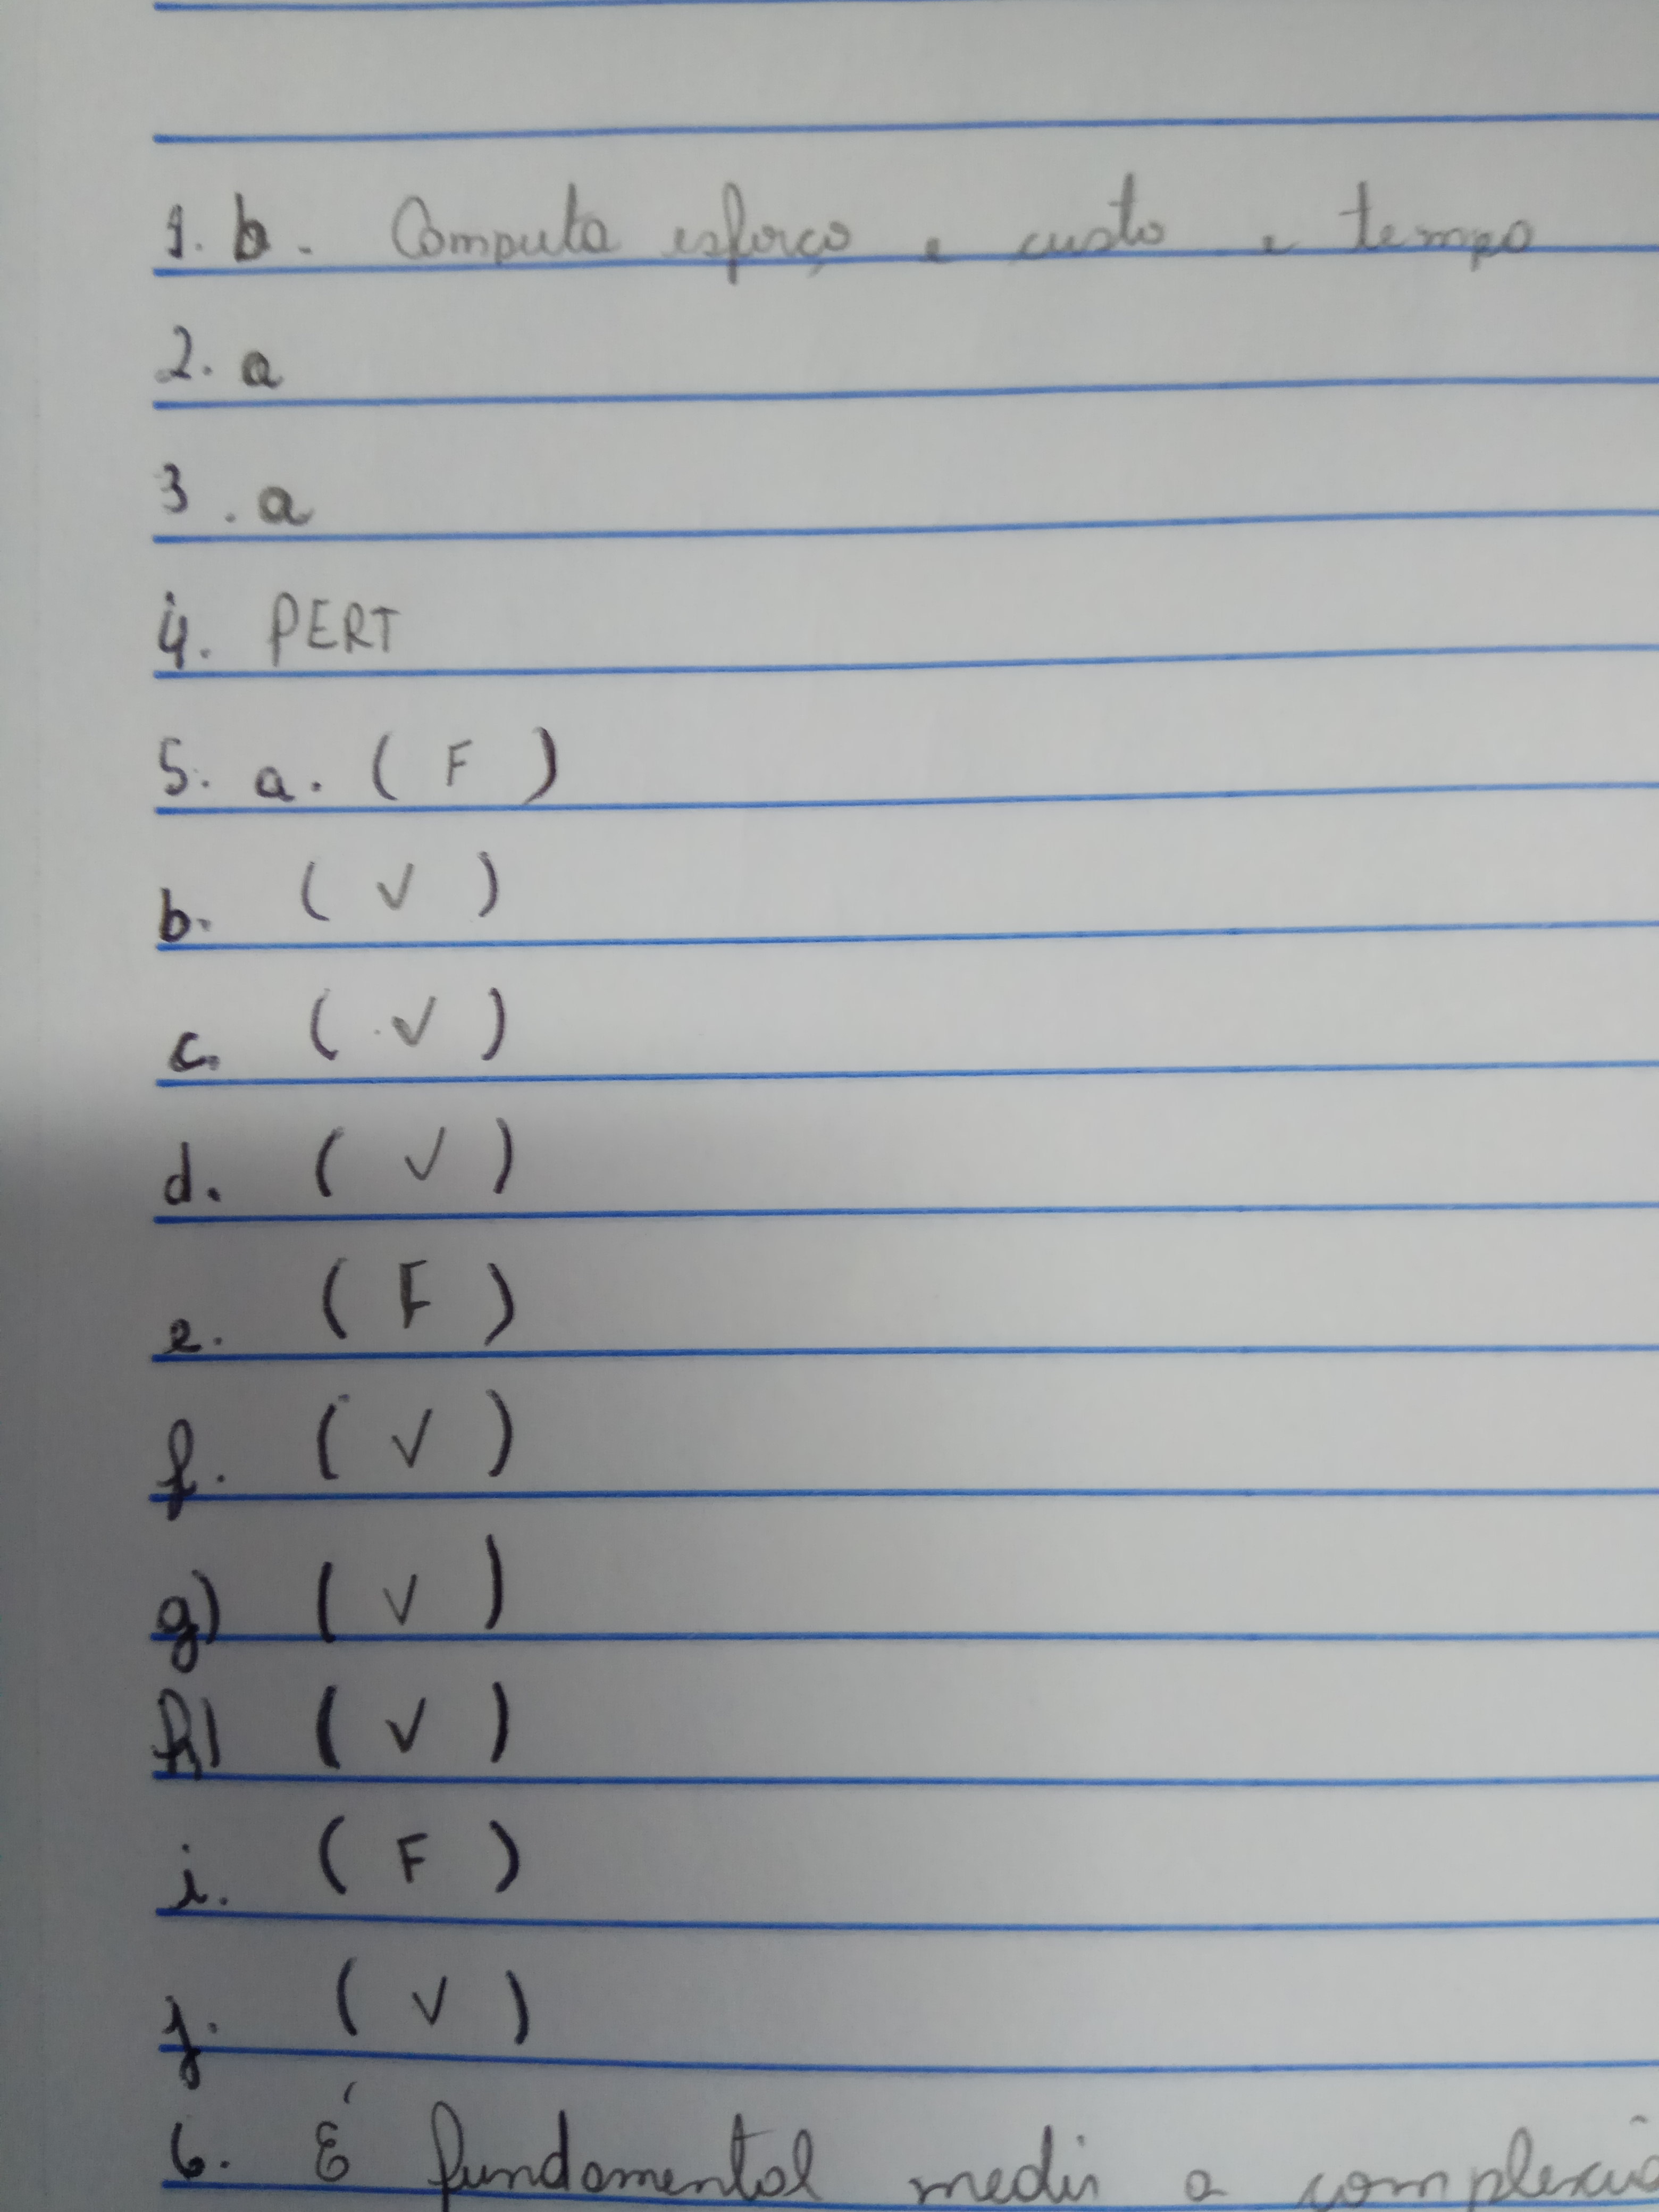 1. b. Computa esforço e custo e tempo
2. a
3. a
4. PERT
5. a. ( F )
b. ( V )
c. ( V )
d. ( V )
e. ( F )
f. ( V )
g) ( V )
h) ( V )
i. ( F )
j. ( V )
6. É fundamental medir a